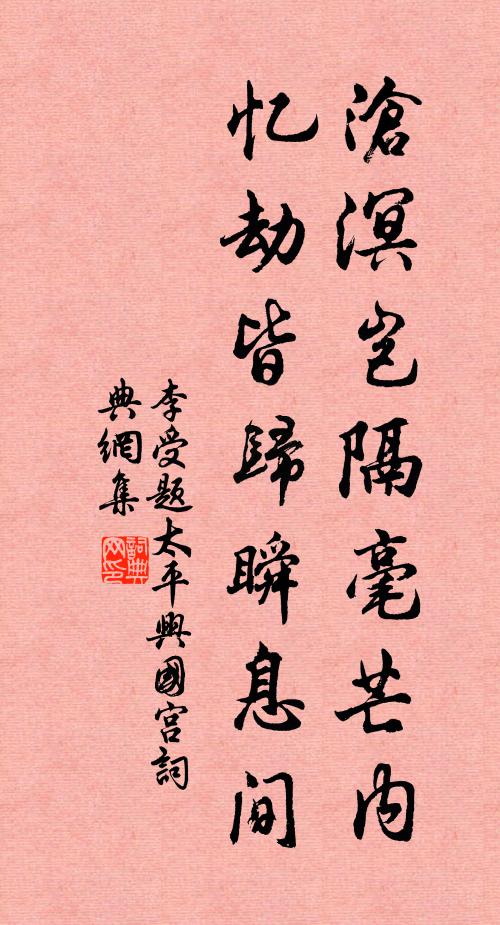 滄溟岂隔毫芒内
忆劫皆歸瞬息间
李受题太平興國宫詞
典網集
詞典網印